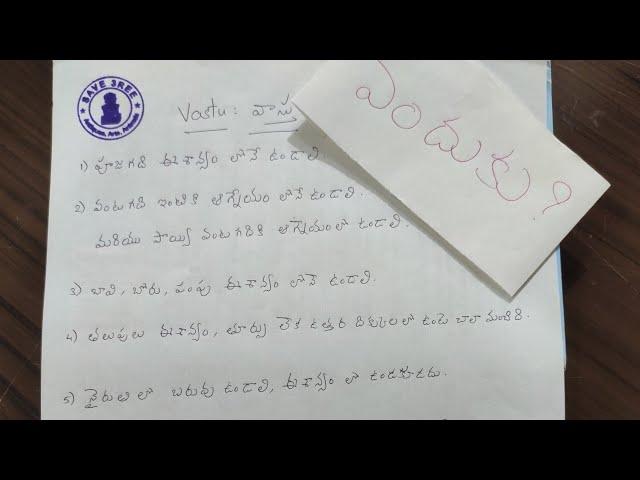 SAVE 3REE
Vastu : వాస్తు
ఎందుకు ?
1) పూజగది ఈశాన్యం లోనే ఉండాలి.
2) వంటగది ఇంటికి ఆగ్నేయం లోనే ఉండాలి.
మరియు పొయ్యి వంటగదికి ఆగ్నేయంలో ఉండాలి.
3) బావి, బోరు, పంపు ఈశాన్యం లోనే ఉండాలి.
4) తలుపులు ఈశాన్యం, తూర్పు లేక ఉత్తర దిక్కులలో ఉంటె చాలా మంచిది.
5) నైరుతి లో బరువు ఉండాలి, ఈశాన్యం లో ఉండకూడదు.